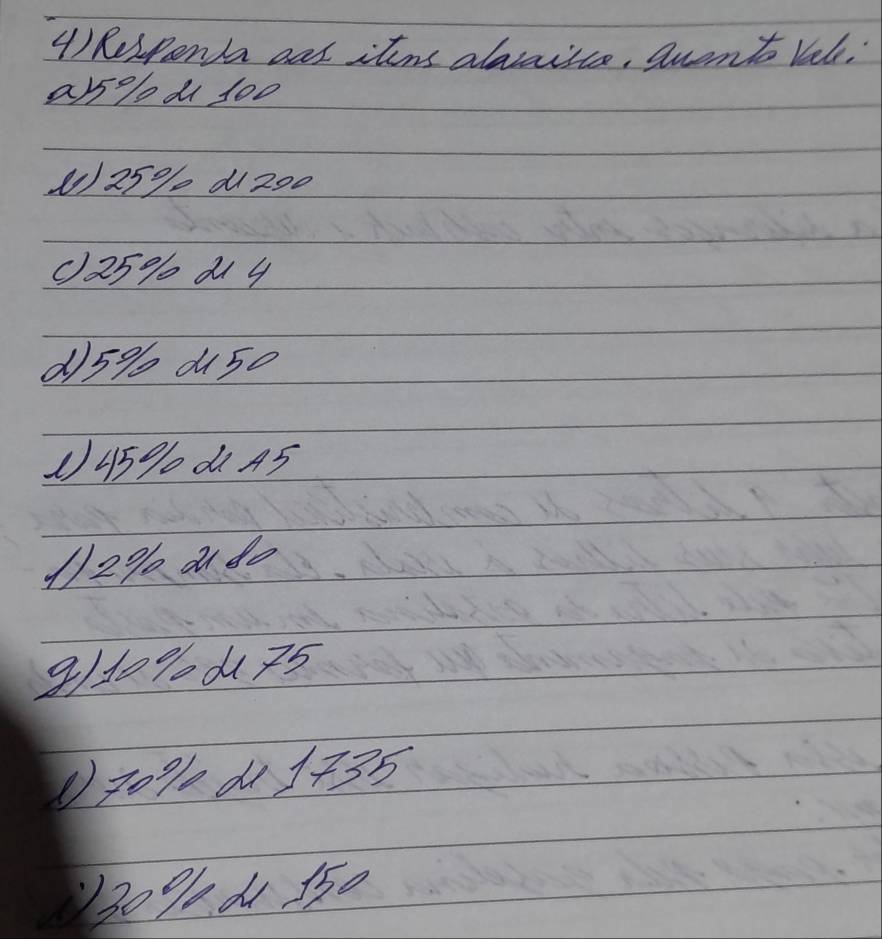 4) Responda aos itens abaixo. Quanto Vale:
a) 5% de 100
b) 25% de 200
c) 25% de 4
d) 5% de 50
e) 45% de 45
f) 2% de 80
g) 10% de 75
h) 70% de 1735
i) 30% de 150